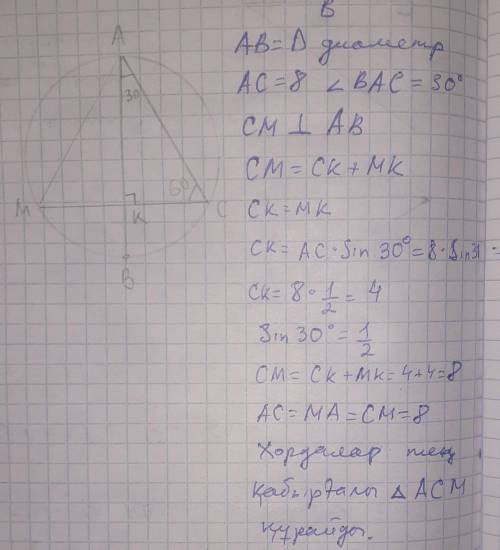 B
AB = D диаметр
AC = 8 ∠BAC = 30°
CM ⊥ AB
CM = CK + MK
CK = MK
CK = AC · Sin 30° = 8 · Sin 30 =
CK = 8 · 1/2 = 4
Sin 30° = 1/2
CM = CK + MK = 4 + 4 = 8
AC = MA = CM = 8
Хордалар тең
қабырғалы △ ACM
құрайды.
A
30
60
M
K
C
B